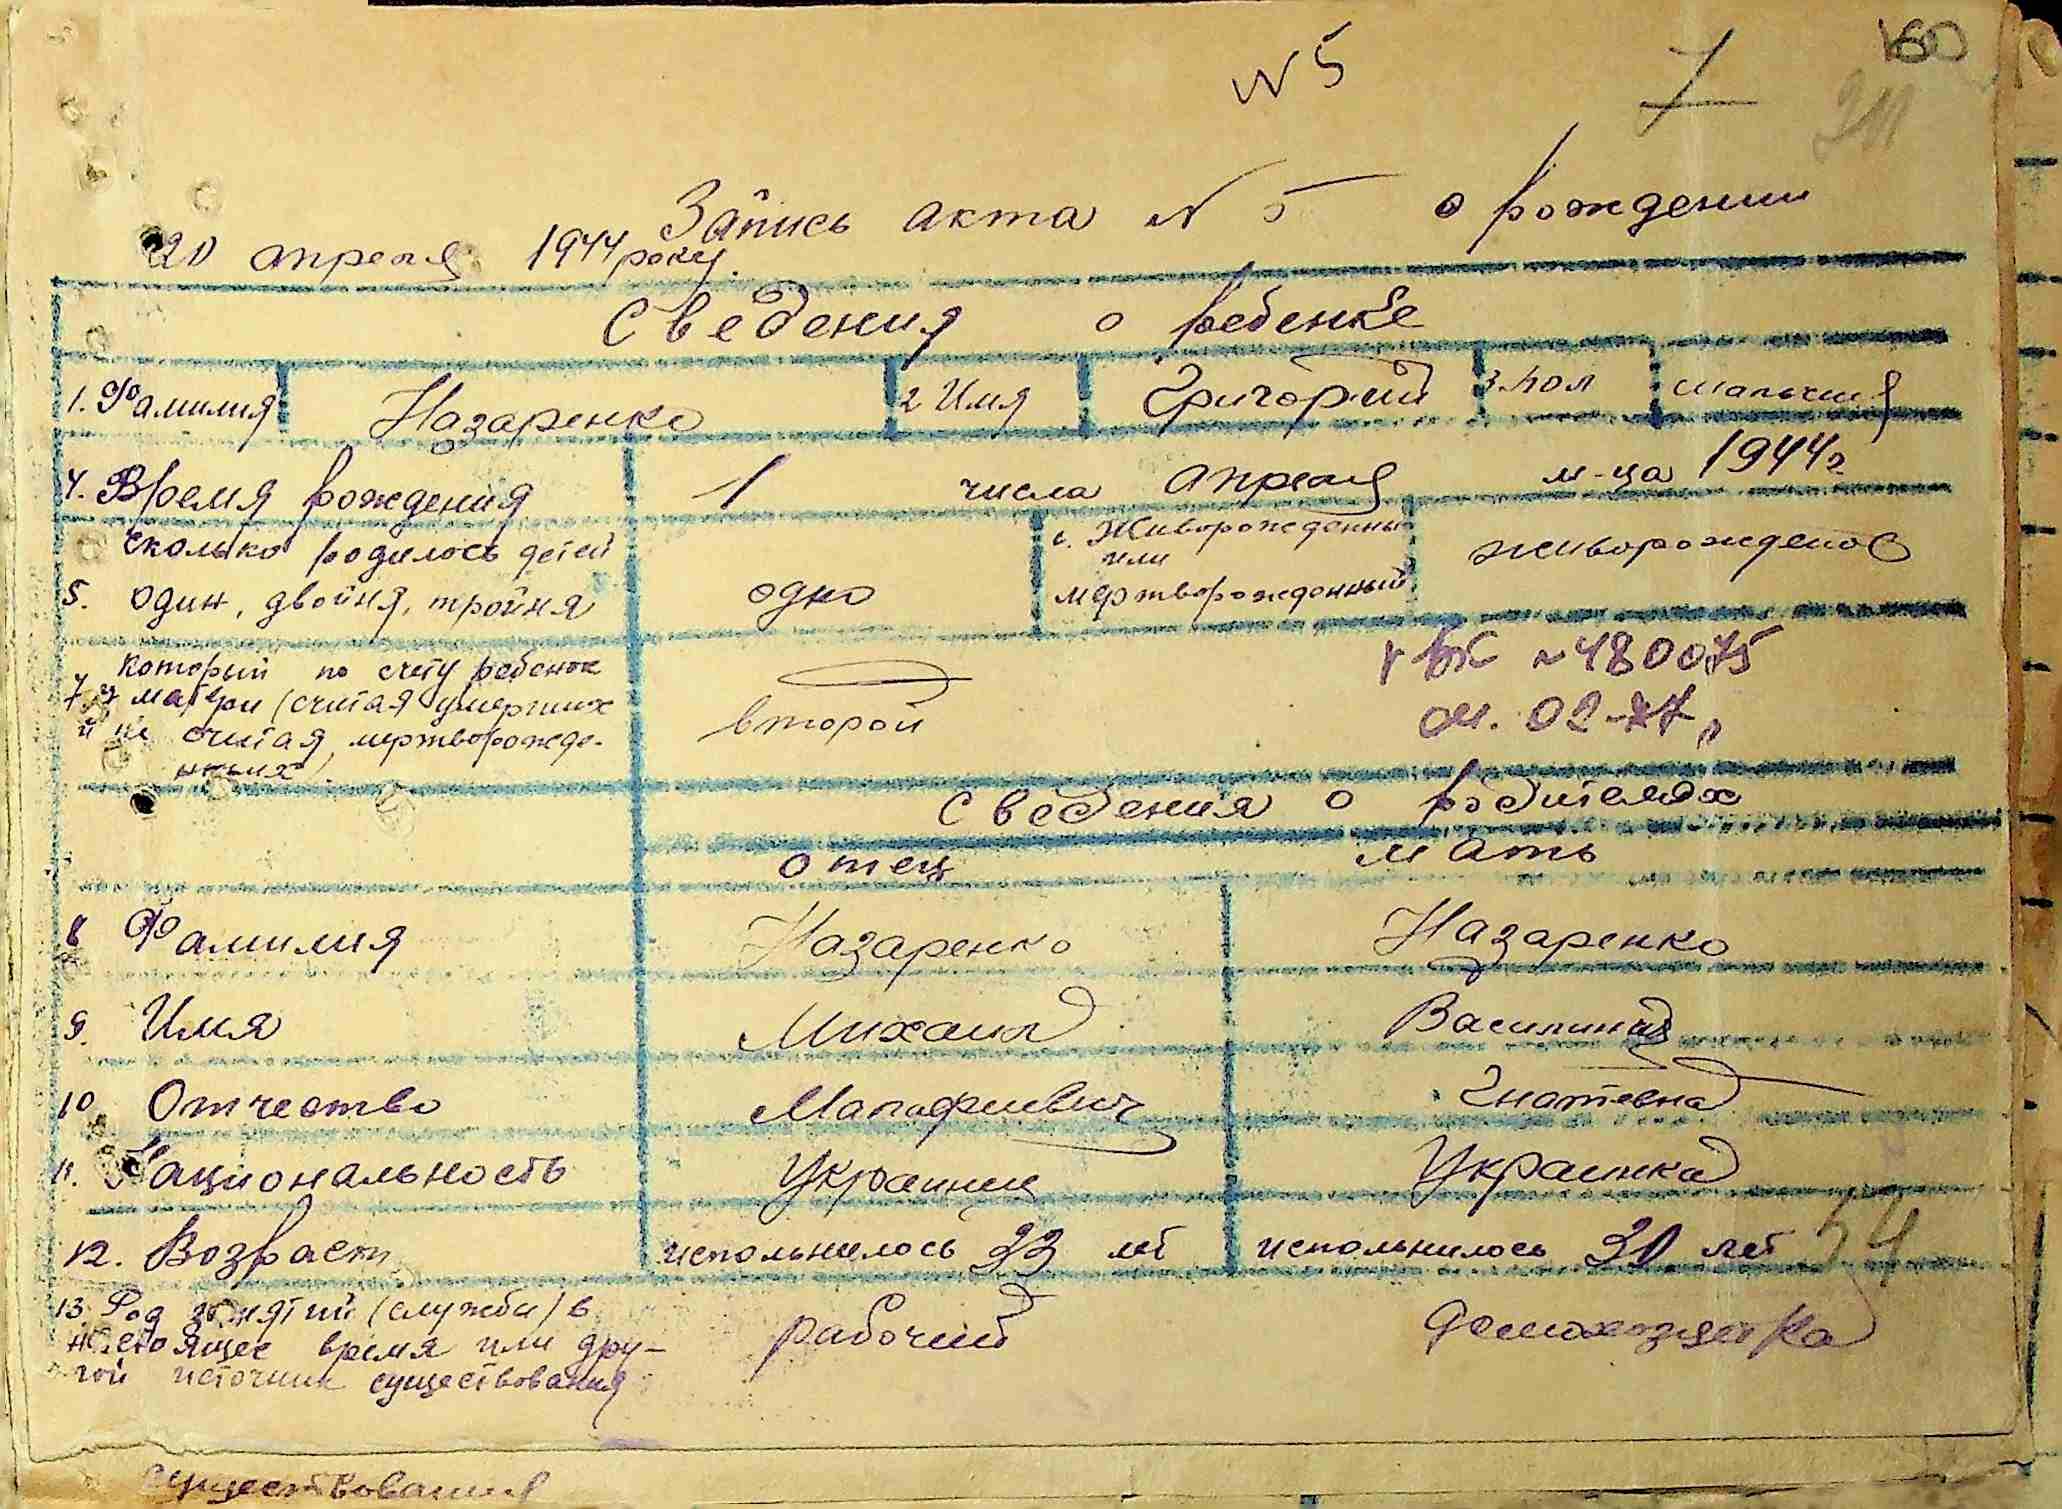 N 5
7
160
Запись акта N 5 о рождении
20 апреля 1944 року.
Сведения о ребенке
1. Фамилия Назаренко 2 Имя Григорий 3. пол мальчик
4. Время рождения 1 числа апреля м-ца 1944 г.
5. сколько родилось детей
один, двойня, тройня одно
6. Живорожденный
или
мертворожденный живорожденое
7. который по счету ребенок
у матери (считая умерших
и не считая мертворожде-
нных) второй
N 480075
02-77
Сведения о родителях
отец мать
8 Фамилия Назаренко Назаренко
9. Имя Михаил Василина
10 Отчество Гнатевна
11. Национальность Украинец Украинка
12. Возраст испольнилось 33 лет испольнилось 30 лет
54
13. Род занятий (службы) в
настоящее время или дру-
гой источник существования рабочий домохозяйка
существования